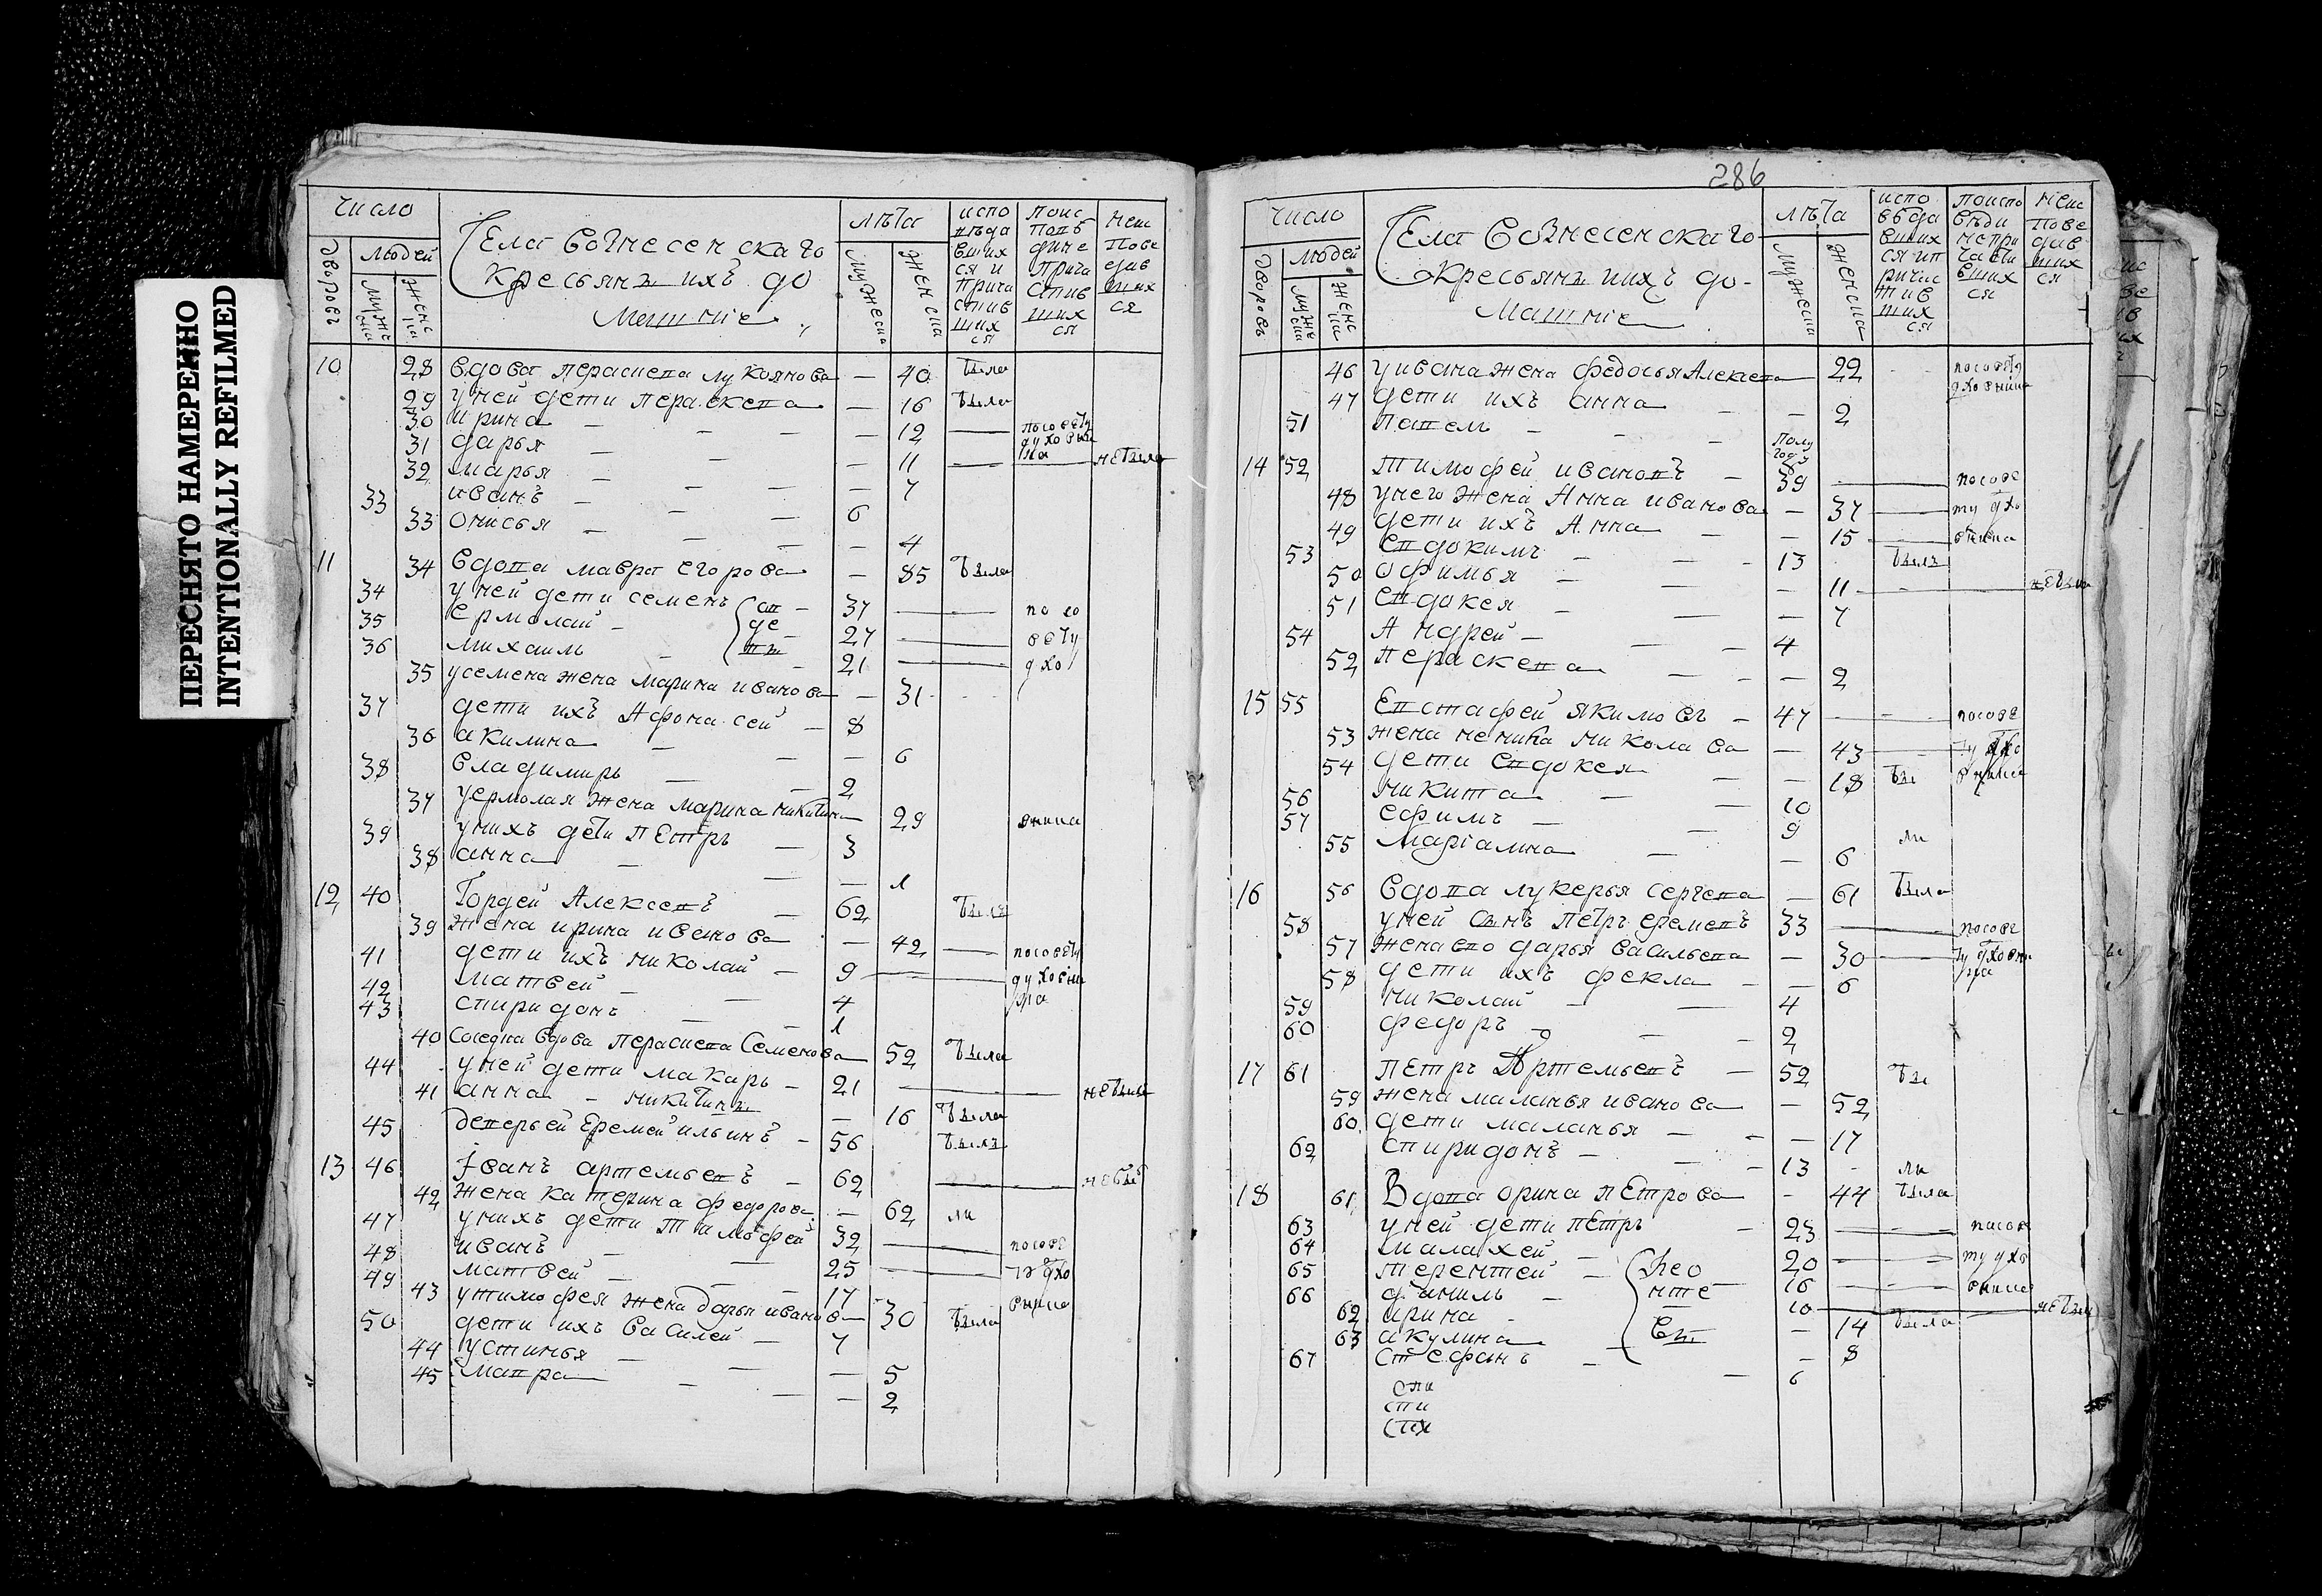 ПЕРЕСНЯТО НАМЕРЕННО
INTENTIONALLY REFILMED
число
людей
дворовъ
мужеска
женска
Села вознесенскаго
крестьянъ ихъ до
машніе
лѣта
мужеска
женска
испо
вѣда
вших
ся и
прича
стив
ших
ся
неис
пове
дав
ших
ся
10 28 вдова пераскева лукоянова — 40 была
29 у ней дети пераскева — 16 была
30 ирина — 12 — посовету
31 дарья — 11 — духовника не была
32 марья — 7
33 иванъ — 6
33 онисья — 4
11 34 вдова мавра егорова — 85 была
34 у ней дети семенъ 37 — по со
35 ермолай — 27 — вету
36 михаилъ — 21 — дхо
35 у семена жена марина иванова — 31
37 дети ихъ Афонасей — 8
36 акилина — 6
38 владимиръ — 2
37 у ермолая жена марина микитина 29 вника
39 у нихъ дети петръ — 3
38 анна — 1
12 40 Гордей Алексеевъ — 62 былъ
39 жена ирина иванова — 42 — посовету
41 дети ихъ николай — 9 — духовни
42 матвей — 4 ка
43 спиридонъ — 1
40 соседка вдова пераскева Семенова 52 была
44 у ней дети макаръ — 21 — не былъ
41 анна — микитины — 16 была
45 Еремей ильинъ — 56 былъ
13 46 Іванъ артемьевъ — 62 — не бы
42 жена катерина федорова — 62 ли
47 у нихъ дети тимофей 32 — посове
48 иванъ — 25 — ту дхо
49 матвей — 17 вника
43 у тимофея жена дарья иванова — 30 была
50 дети ихъ василей — 7
44 устинья — 5
45 мавра — 2
286
число
людей
дворовъ
мужеска
женска
Села вознесенскаго
крестьянъ ихъ до-
машніе
лѣта
мужеска
женска
испо
вѣда
вших
ся ип
ричас
тив
ших
ся
поиспо
вѣди
непри
части
вших
ся
неис
пове
дав
ших
ся
46 у ивана жена федосья Алексева 22 посовету
47 дети ихъ анна — 2 дховника
51 павелъ — полу году
14 52 тимофей ивановъ — 39 — посове
48 у него жена Анна иванова — 37 — ту дхо
49 дети ихъ Анна — 15 — вника
53 евдокимъ — 13 былъ
50 офимья — 11 — не была
51 евдокея — 7
54 Андрей — 4
52 пераскева — 2
15 55 Евстафей якимовъ — 47 — посове
53 жена ненила николаева — 43 — ту дхо
54 дети евдокея — 18 бы вника
56 микита — 10
57 ефимъ — 9 ли
55 маріамна — 6
16 56 вдова лукерья сергева — 61 была
58 у ней сынъ петръ еремевъ 33 — посове
57 жена ево дарья васильева — 30 — ту дховни
58 дети ихъ фекла — 6 ка
59 николай — 4
60 федоръ — 2
17 61 петръ Артемьевъ — 52 бы
59 жена маланья иванова — 52
60 дети маланья — 17
62 спиридонъ — 13 ли
18 61 Вдова орина петрова — 44 была
63 у ней дети петръ — 23 — посове
64 малахей — 20 — ту дхо
65 терентей — 16 — вника
66 данилъ — 10 — не были
62 ирина — 14 была
63 акулина — 8
67 стефанъ — 6